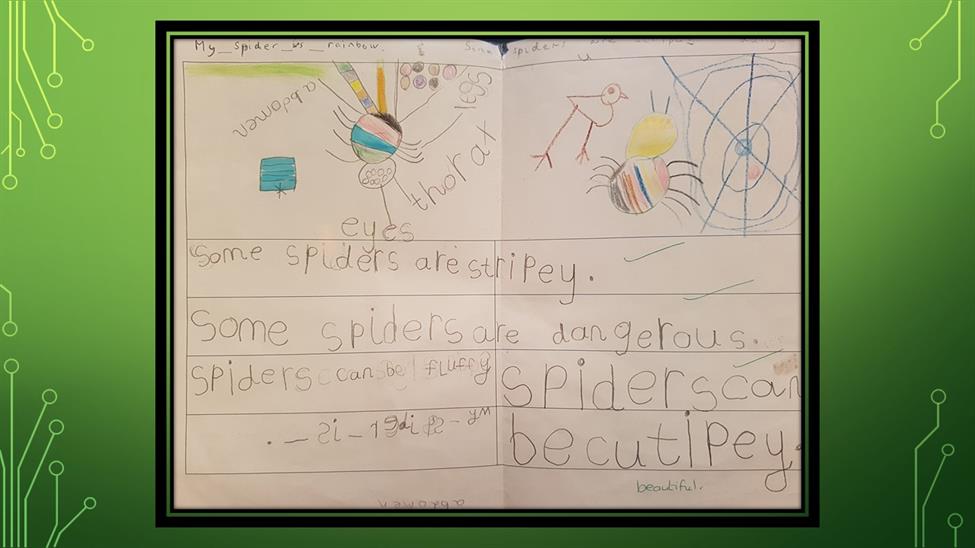 My_spider_is_rainbow.
Some spiders are stripey
abdomen
legs
thorax
eyes
Some spiders are stripey.
Some spiders are dangerous.
spiders can be fluffy
spiders can
my - spider - is - .
be cutipey.
beautiful.
abdomen